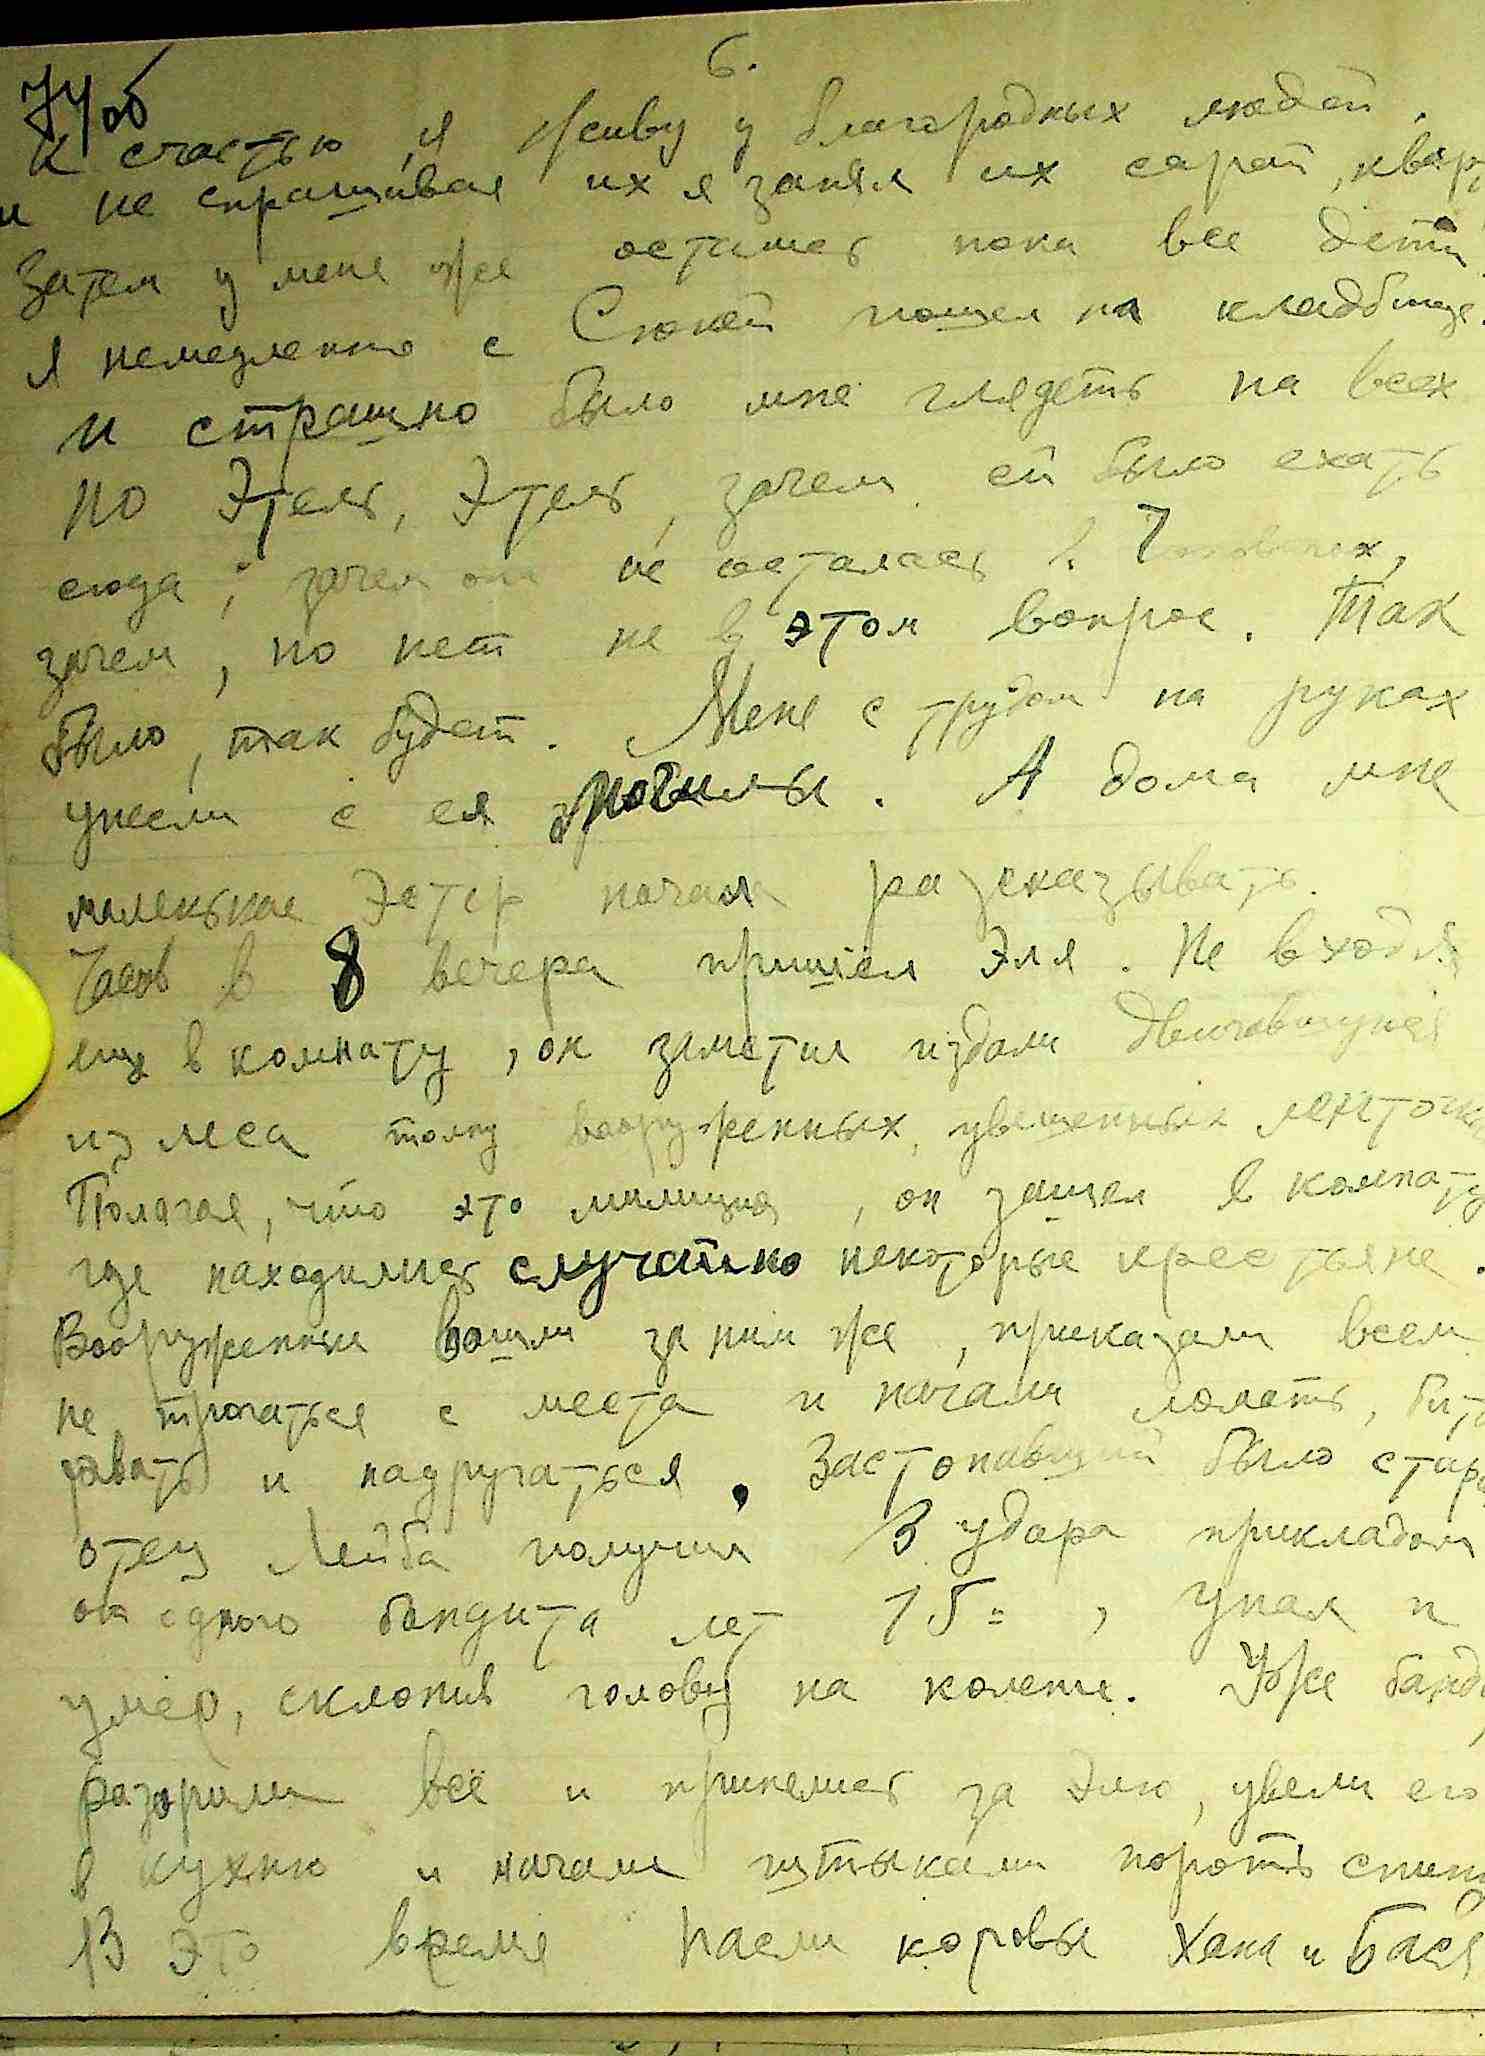 6.
74об
К счастью, я живу у благородных людей,
и не спрашивая их я занял их сарай, квар
Затем у меня же остались пока все дети
Я немедленно с Сюней пошел на кладбище.
И страшно было мне глядеть на всех
но Этель, Этель, зачем ей было ехать
сюда; зачем она не осталась в
зачем, но нет не в этом вопрос. Так
было, так будет. Меня с трудом на руках
унесли с ея могилы. А дома мне
маленькая Эстер начала разсказывать.
Часов в 8 вечера пришел Эля. Не входя
еще в комнату, он заметил издали двигавшуюся
из леса толпу вооруженных, увешенных ленточк
Полагая, что это милиция, он зашел в комнату
где находились случайно некоторые крестьяне.
Вооруженные вошли за ним же, приказали всем
не трогаться с места и начали ломать, бить
рвать и надругаться. Застонавший было стар
отец Лейба получил 3 удара прикладом
от одного бандита лет 15=, упал и
умер, склонив голову на колени. Уже банд
разорили всё и принялись за Элю, увели его
в кухню и начали штыками пороть спину
В это время пасли коровы Хана и Бася